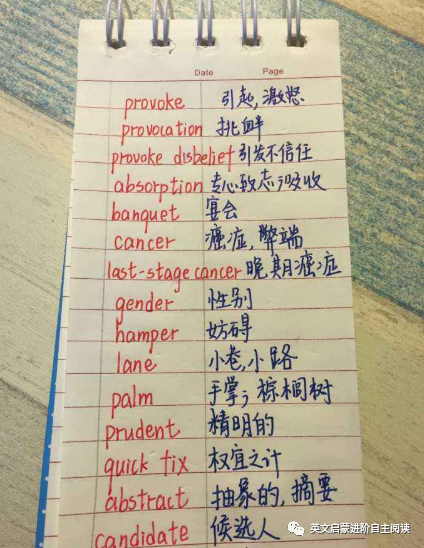 Date Page
provoke 引起,激怒
provocation 挑衅
provoke disbelief 引发不信任
absorption 专心致志;吸收
banquet 宴会
cancer 癌症,弊端
last-stage cancer 晚期癌症
gender 性别
hamper 妨碍
lane 小巷,小路
palm 手掌;棕榈树
prudent 精明的
quick fix 权宜之计
abstract 抽象的,摘要
candidate 候选人
英文启蒙进阶自主阅读